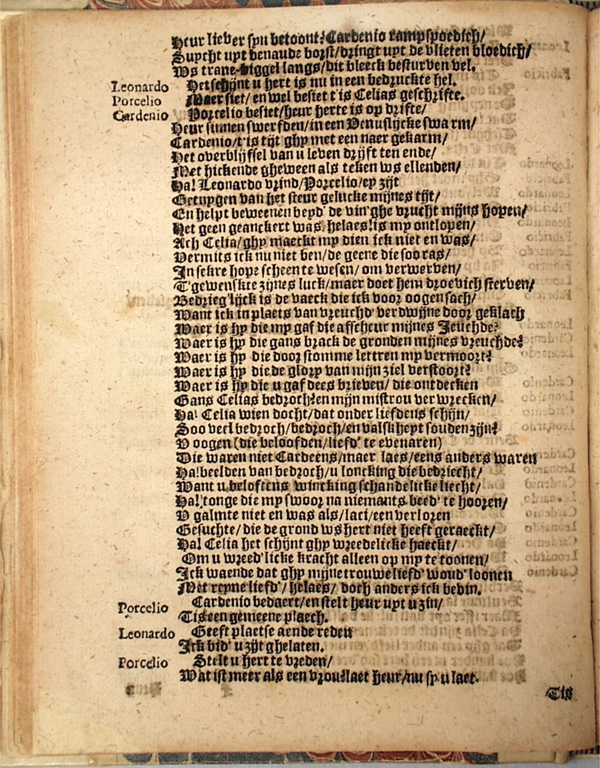 Heur liever syn betoont? Cardenio rampspoedich/
Suycht uyt benaude borst/dringt uyt de vlieten bloedich/
Ws trane-biggel langs/dit bleeck besturven vel.
Leonardo Hetschijnt u hert is nu in een bedruckte hel.
Porcelio Maer siet/ en wel besiet t'is Celias geschrifte.
Cardenio Porcelio besiet/heur herte is op drifte/
Heur sinnen swerfden/in een Venuslijcke swarm/
Cardenio/t'is tijt ghy met een naer gekarm/
Het overblijffel van u leven drijft ten ende/
Met hickende gheween als teken ws ellenden/
Ha! Leonardo vrind/Porcelio/ey zijt
Getuygen van het steur gelucke mijnes tijt/
En helpt beweenen beyd' de vin'ghe vrucht mijns hopen/
Het geen geanckert was, helaes! is my ontlopen/
Ach Celia/ghy maeckt my dien ick niet en was/
Vermits ick nu niet ben/de geene die soo ras/
In sekre hope scheen te wesen/ om verwerven/
T'gewenskte zijnes luck/maer doet hem droevich sterven/
Bedrieg'lijck is de vaeck die ick voor oogen sach/
Want ick in plaets van vreuchd' verdwijne door geklach
Waer is hy die my gaf die affcheur mijnes Jeuchde?
Waer is hy die gans brack de gronden mijnes vreuchde?
Waer is hy die door stomme lettren my vermoort?
Waer is hy die de glory van mijn ziel verstoort?
Waer is hy die u gaf dees brieven/ die ontdecken
Gans Celias bedroch? en mijn mistrou verwecken/
Ha! Celia wien docht/dat onder liefdens schijn/
Soo veel bedroch/bedroch/en valskheyt souden zijn?
V oogen (die beloofden/liefd' te evenaren)
Die waren niet Cardeens/maer laes/eens anders waren
Ha! beelden van bedroch/u loncking die bedriecht/
Want u beloftens wincking schandelicke liecht/
Ha! tonge die my swoor na niemants beed' te hooren/
V galmte niet en was als/laci/een verloren
Gesuchte/die de grond ws hert niet heeft geraeckt/
Ha! Celia het schijnt ghy wreedelicke haeckt/
Om u wreed'licke kracht alleen op my te toonen/
Ick waende dat ghy mijne trouwe liefd' woud' loonen
Met reyne liefd'/ helaes/ doch anders ick bedin.
Porcelio Cardenio bedaert/en stelt heur uyt u zin/
Tis een gemeene plaech.
Leonardo Geeft plaetse aende reden
Ick bid' u zijt ghelaten.
Porcelio Stelt u hert te vreden/
Wat ist meer als een vrou? laet heur/nu sy u laet.
Tis